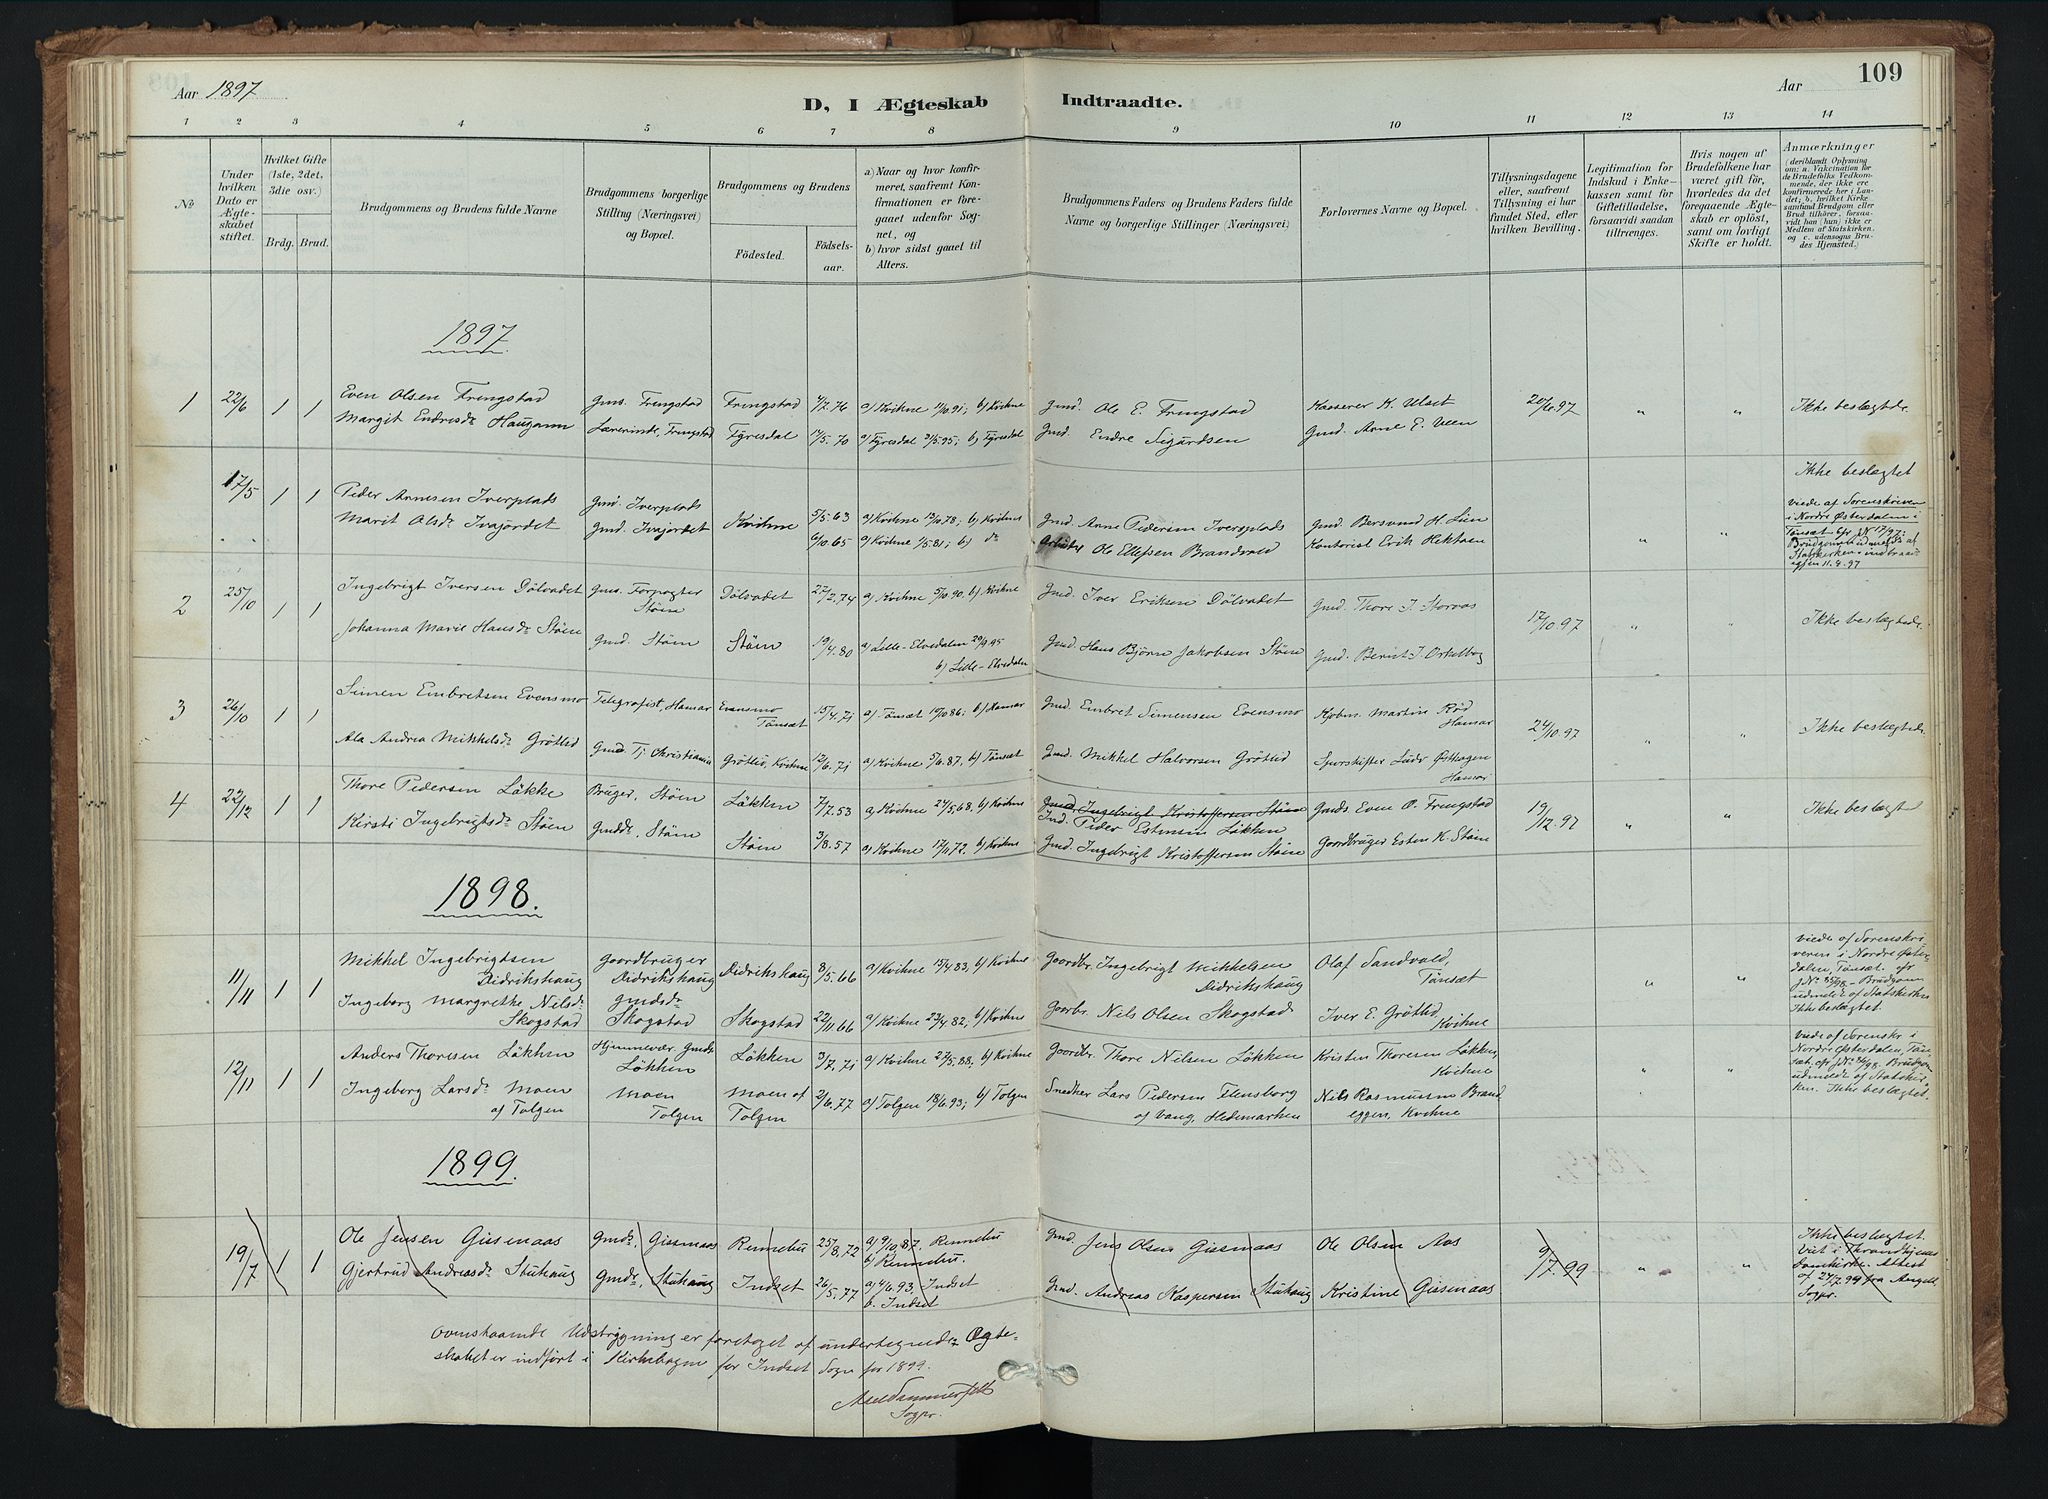 Aar 1897
D, I Ægteskab Indtraadte.
Aar
109
1 2 3 4 5 6 7 8 9 10 11 12 13 14
No
Under hvilken Dato er Ægteskabet stiftet.
Hvilket Gifte (1ste, 2det, 3die osv.)
Brdg. Brud.
Brudgommens og Brudens fulde Navne
Brudgommens borgerlige Stilling (Næringsvei) og Bopæl.
Brudgommens og Brudens
Födested.
Födselsaar.
a) Naar og hvor konfirmeret, saafremt Konfirmationen er foregaaet udenfor Sognet, og
b) hvor sidst gaaet til Alters.
Brudgommens Faders og Brudens Faders fulde Navne og borgerlige Stillinger (Næringsvei)
Forlovernes Navne og Bopæl.
Tillysningsdagene eller, saafremt Tillysning ei har fundet Sted, efter hvilken Bevilling.
Legitimation for Indskud i Enkekassen samt for Giftetilladelse, forsaavidt saadan tiltrænges.
Hvis nogen af Brudefolkene har været gift för, hvorledes da det foregaaende Ægteskab er oplöst, samt om lovligt Skifte er holdt.
Anmærkninger
(deriblandt Oplysning om: a. Vakcination for de Brudefolks Vedkommende, der ikke ere konfirmerede her i Landet; b. hvilket Kirkesamfund Brudgom eller Brud tilhörer, forsaavidt han (hun) ikke er Medlem af Statskirken, og c. udensogns Brudes Hjemsted.)
1897
1 22/6 1 1 Even Olsen Fringstad Gms. Fringstad Fringstad 4/2.76 a) Kvikne 11/10.91; b) Kvikne Gmd. Ole E. Fringstad Kasserer K. Ulset 20/6.97 " " Ikke beslægtede
Margit Endresdr Haugann Lærerinde, Fringstad Fyresdal 17/5.70 a) Fyresdal 3/5.95; b) Fyresdal Gmd. Endre Sigurdsen Gmd. Arne E. Veen
17/5 1 1 Peder Arnesen Iverplads Gmd. Iverplads Kvikne 5/5.63 a) Kvikne 13/10.78; b) Kvikne Gmd. Arne Pedersen Iverplads Gmd. Bersvend H. Lien " " Ikke beslægtet
Marit Olsdr Ivajordet Gmd. Ivajordet 6/10.65 a) Kvikne 1/5.81; b) do Arbeider Ole Ellefsen Brandvold Kontorist Erik Hektoen
viede af Sorenskriveren i Nordre Østerdalen i Tönset
Brudgommen udmeldt af Statskirken, indtraadt igjen 11.4.97
2 25/10 1 1 Ingebrigt Iversen Dölvadet Gms. Forpagter Stöen Dölvadet 27/2.74 a) Kvikne 5/10.90. b) Kvikne Gmd. Iver Eriksen Dölvadet Gmd. Thore J. Storaas 17/10.97 " " Ikke beslægtede.
Johanna Marie Hansdr Stöen Gmd. Stöen Stöen 19/4.80 a) Lille-Elvedalen 29/9.95 b) Lille-Elvedalen Gmd. Hans Björn Jakobsen Stöen Gmd. Berint J. Orkelbog
3 26/10 1 1 Simen Embretsen Evensmo Telegrafist, Hamar Evensmo Tönset 15/4.71 a) Tönset 17/10.86; b) Hamar Gmd. Embret Simensen Evensmo Kjöbm. Martin Röd Hamar 24/10.97 " " Ikke beslægtede
Ala Andrea Mikkelsdr Grötlid Gmd. Tj. Christiania Grötlid, Kvikne 12/6.71 a) Kvikne 5/6.87. b) Tönset Gmd. Mikkel Halvorsen Grötlid Sporskifter Ludv Østhagen Hamar
4 22/12 1 1 Thore Pedersen Løkke Bruger, Stöen Løkken 7/7.53 a) Kvikne 24/5.68, b) Kvikne Gmd. Ingebrigt Kristoffersen Stöen Gmds. Even O. Fringstad 19/12.97 " " Ikke beslægtet
Ind. Peder Estensen Løkken
Kirsti Ingebrigtsdr Stöen Gmdd., Stöen Stöen 3/8.57 a) Kvikne 17/11.72. b) Kvikne Gmd. Ingebrigt Kristoffersen Stöen Gaardbruger Esten K. Stöen
1898.
11/11 1 1 Mikkel Ingebrigtsen Didrikshaug Gaardbruger Didrikshaug Didrikshaug 8/5.66 a) Kvikne 15/4.83, b) Kvikne Gaardbr. Ingebrigt Mikkelsen Didrikshaug Olaf Sandvold, Tönset " "
Ingeborg Margrethe Nilsdr Skogstad Gmdsdr Skogstad Skogstad 22/11.66 a) Kvikne 23/4.82; b) Kvikne Gaardbr. Nils Olsen Skogstad Iver E. Grötlid, Kvikne
viede af Sorenskriveren i Nordre Østerdalen, Tönset. - Brudgom udmeldt af Statskirken Ikke beslægtet.
12/11 1 1 Anders Thoresen Løkken Hjemmevær. Gmds. Løkken Løkken 3/7.71 a) Kvikne 27/5.88, b) Kvikne Gaardbr. Thore Nilsen Løkken Kristen Thoresen Løkken, Kvikne " "
Ingeborg Larsdr Moen af Tolgen Moen Tolgen Moen af Tolgen 2/6.77 a) Tolgen 18/6.93; b) Tolgen Snedker Lars Pedersen Flensborg af Vang, Hedemarken Nils Rasmussen Brandeggen, Kvikne
viede af Sorenskr. i Nordre Østerdalen, Tönset. Brudgom udmeldt af Statskirken. Ikke beslægtet.
1899.
19/7 1 1 Ole Jensen Gissenaas Gmds. Gissenaas Rennebu 25/8.72 a) 9/10.87. Rennebu b) Rennebu. Gmd. Jens Olsen Gissenaas Ole Olsen Aas 9/7.99 " " "
Gjertrud Andreasdr Stuhaug Gmdr. Stuhaug Indset 26/5.77 a) 4/6.93, Indset b. Indset Gmd. Andreas Kaspersen Stuhaug Kristine Gissenaas
Ikke beslægtet. Viet i Throndhjems Domkirke. Attest af 24/7.99 fra Sogpr.
Ovenstaaende Udstrygning er foretaget af undertegnede. Ægteskabet er indfört i Kirkebogen for Indset Sogn for 1899.
Axel Sommerfelt
Sogpr.